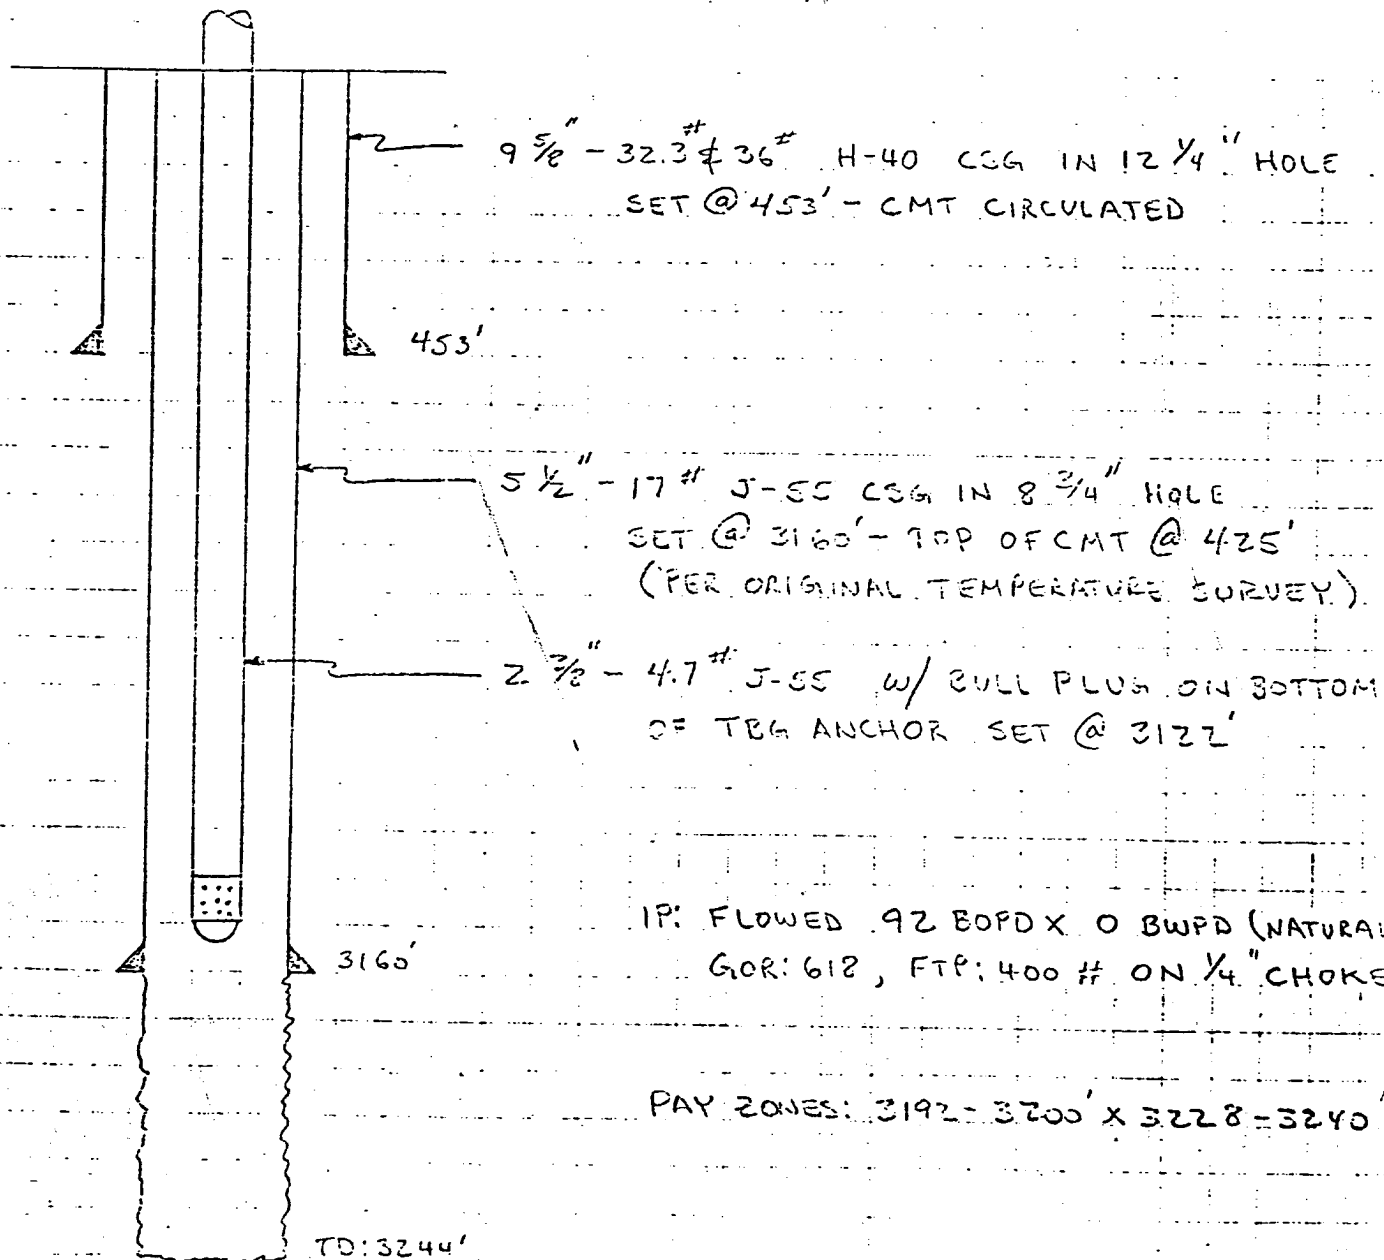 9 5/8" - 32.3# & 36# H-40 CSG IN 12 1/4" HOLE
SET @ 453' - CMT CIRCULATED
453'
5 1/2" - 17# J-55 CSG IN 8 3/4" HOLE
SET @ 3160' - TOP OF CMT @ 425'
(PER ORIGINAL TEMPERATURE SURVEY)
2 3/8" - 4.7# J-55 W/ BULL PLUG ON BOTTOM
OF TBG ANCHOR SET @ 3122'
IP: FLOWED 92 BOPD X 0 BWPD (NATURAL
3160'
GOR: 618, FTP: 400 # ON 1/4" CHOKE
PAY ZONES: 3192-3200' X 3228-3240'
TD: 3244'